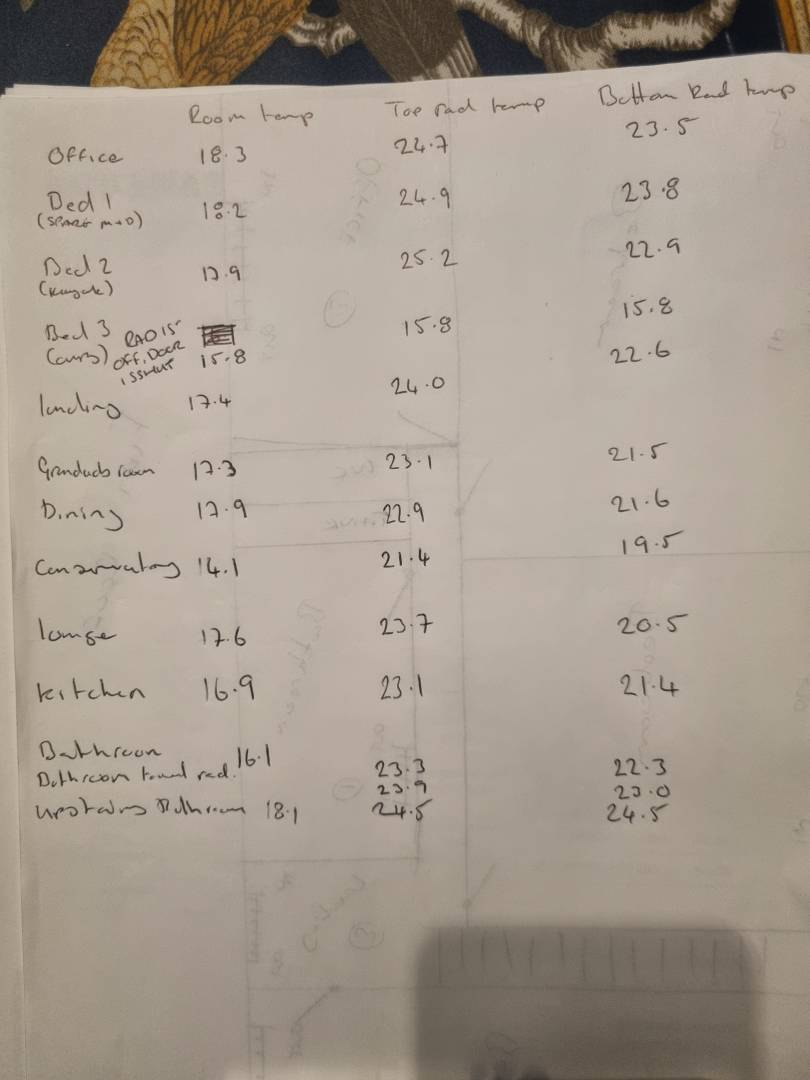 Room temp Top rad temp Bottom Rad temp
Office 18.3 24.7 23.5
Bed 1 18.2 24.9 23.8
(SPARE
Bed 2 17.9 25.2 22.9
Bed 3 RAD IS 15.8 15.8
OFF, DOOR 15.8
IS SHUT
landing 17.4 24.0 22.6
Grandads room 17.3 23.1 21.5
Dining 17.9 22.9 21.6
Conservatory 14.1 21.4 19.5
lounge 17.6 23.7 20.5
kitchen 16.9 23.1 21.4
Bathroom 16.1 23.3 22.3
Bathroom towel rad. 23.9 23.0
upstairs Bathroom 18.1 24.5 24.5